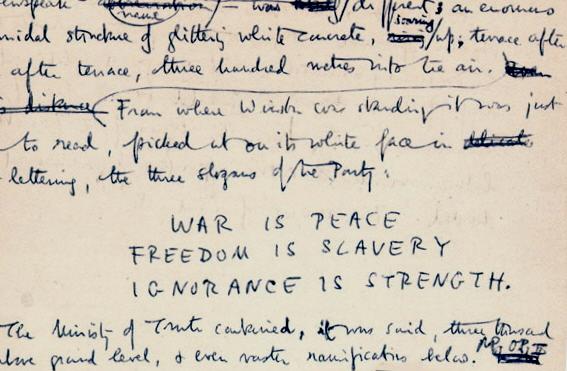 ewspeak name – was different: an enormous
midal structure of glittering white concrete, soaring up, terrace after
after terrace, three hundred metres into the air.
distance From where Winston was standing it was just
to read, picked out on its white face in delicate
lettering, the three slogans of the Party:
WAR IS PEACE
FREEDOM IS SLAVERY
IGNORANCE IS STRENGTH.
The Ministry of Truth contained, it was said, three thousand
above ground level, & even vaster ramifications below.